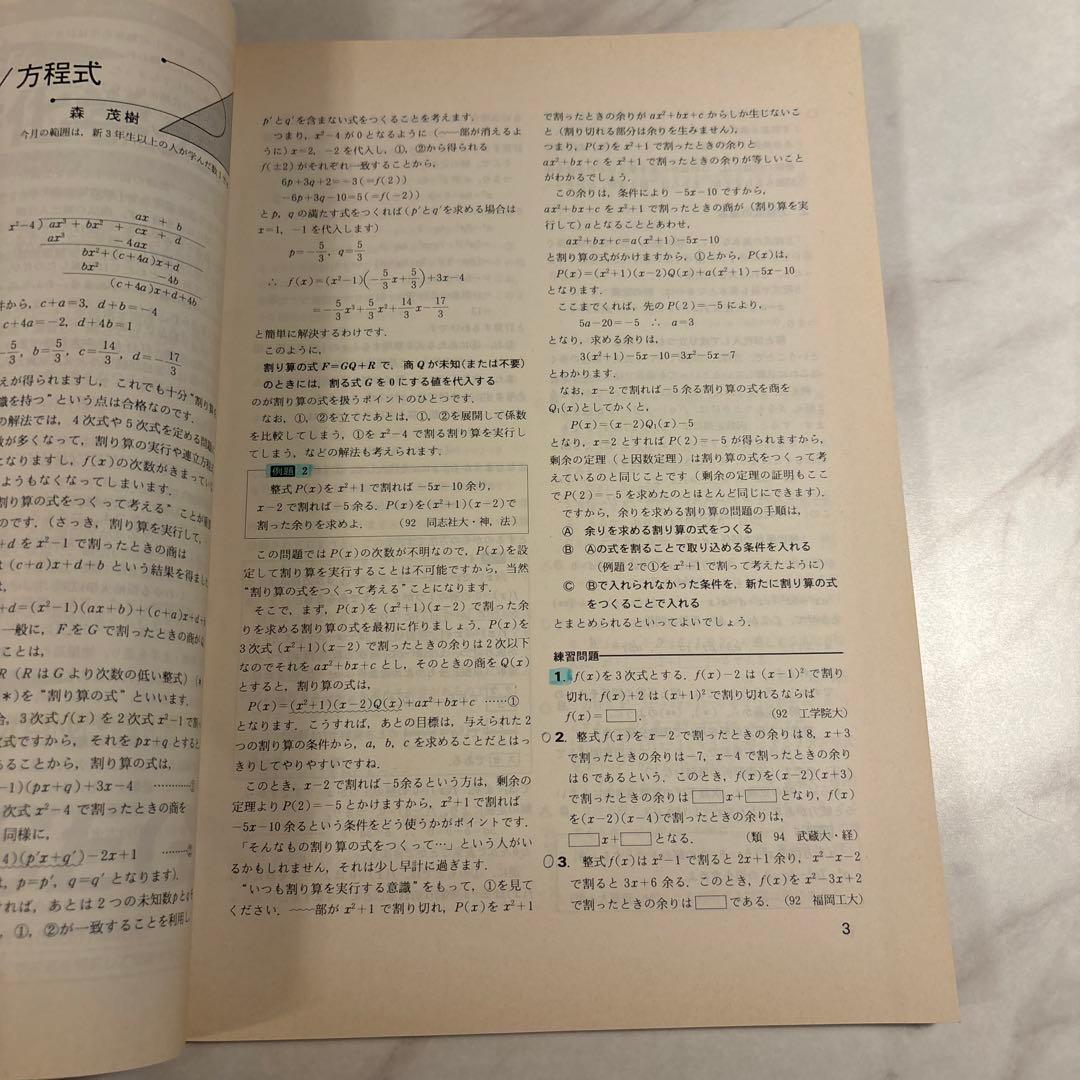 /方程式
森 茂樹
今月の範囲は，新3年生以上の人が学んだ数I
ax + b
x²−4）ax³ + bx² + cx + d
ax³ −4ax
bx²+(c+4a)x+d
bx² −4b
(c+4a)x+d+4b
から，c+a=3，d+b=−4
c+4a=−2，d+4b=1
5/3，b=5/3，c=14/3，d=−17/3
えが得られますし，これでも十分“割り算
識を持つ”という点は合格なのです．
の解法では，4次式や5次式を定める問題
数が多くなって，割り算の実行や連立方程式
になりますし，f(x)の次数がきまってい
ようもなくなってしまいます．
割り算の式をつくって考える”ことが
のです．（さっき，割り算を実行して，
+dをx²−1で割ったときの商は
は(c+a)x+d+bという結果を得まし
は，
+d=(x²−1)(ax+b)+(c+a)x+d+b
一般に，FをGで割ったときの商が
ことは，
R（RはGより次数の低い整式）
＊)を“割り算の式”といいます．
合，3次式f(x)を2次式x²−1で割
次式ですから，それをpx+qとすると
あることから，割り算の式は，
−1)(px+q)+3x−4 ………①
次式x²−4で割ったときの商を
同様に，
4)(p′x+q′)−2x+1 ………②
は，p=p′，q=q′となります）．
ければ，あとは2つの未知数pと
，①，②が一致することを利用し
p′とq′を含まない式をつくることを考えます．
つまり，x²−4が0となるように（〜〜部が消えるよ
うに）x=2，−2を代入し，①，②から得られる
f(±2)がそれぞれ一致することから，
6p+3q+2=−3(=f(2))
−6p+3q−10=5(=f(−2))
とp，qの満たす式をつくれば（p′とq′を求める場合は
x=1，−1を代入します）
p=−5/3，q=5/3
∴ f(x)=(x²−1)(−5/3x+5/3)+3x−4
=−5/3x³+5/3x²+14/3x−17/3
と簡単に解決するわけです．
このように，
割り算の式F=GQ+Rで，商Qが未知（または不要）
のときには，割る式Gを0にする値を代入する
のが割り算の式を扱うポイントのひとつです．
なお，①，②を立てたあとは，①，②を展開して係数
を比較してしまう，①をx²−4で割る割り算を実行し
てしまう，などの解法も考えられます．
例題 2
整式P(x)をx²+1で割れば−5x−10余り，
x−2で割れば−5余る．P(x)を(x²+1)(x−2)で
割った余りを求めよ．（92 同志社大・神，法）
この問題ではP(x)の次数が不明なので，P(x)を設
定して割り算を実行することは不可能ですから，当然
“割り算の式をつくって考える”ことになります．
そこで，まず，P(x)を(x²+1)(x−2)で割った余
りを求める割り算の式を最初に作りましょう．P(x)を
3次式(x²+1)(x−2)で割ったときの余りは2次以下
なのでそれをax²+bx+cとし，そのときの商をQ(x)
とすると，割り算の式は，
P(x)=(x²+1)(x−2)Q(x)+ax²+bx+c ……①
となります．こうすれば，あとの目標は，与えられた2
つの割り算の条件から，a，b，cを求めることだとはっ
きりしてやりやすいですね．
このとき，x−2で割れば−5余るという方は，剰余の
定理よりP(2)=−5とかけますから，x²+1で割れば
−5x−10余るという条件をどう使うかがポイントです．
「そんなもの割り算の式をつくって…」という人がい
るかもしれません，それは少し早計に過ぎます．
“いつも割り算を実行する意識”をもって，①を見て
ください．〜〜部がx²+1で割り切れ，P(x)をx²+1
で割ったときの余りがax²+bx+cからしか生じないこ
と（割り切れる部分は余りを生みません），
つまり，P(x)をx²+1で割ったときの余りと
ax²+bx+cをx²+1で割ったときの余りが等しいこと
がわかるでしょう．
この余りは，条件により−5x−10ですから，
ax²+bx+cをx²+1で割ったときの商が（割り算を実
行して）aとなることとあわせ，
ax²+bx+c=a(x²+1)−5x−10
と割り算の式がかけますから，①とから，P(x)は，
P(x)=(x²+1)(x−2)Q(x)+a(x²+1)−5x−10
となります．
ここまでくれば，先のP(2)=−5により，
5a−20=−5 ∴ a=3
となり，求める余りは，
3(x²+1)−5x−10=3x²−5x−7
とわかります．
なお，x−2で割れば−5余る割り算の式を商を
Q₁(x)としてかくと，
P(x)=(x−2)Q₁(x)−5
となり，x=2とすればP(2)=−5が得られますから，
剰余の定理（と因数定理）は割り算の式をつくって考
えているのと同じことです（剰余の定理の証明もここ
でP(2)=−5を求めたのとほとんど同じにできます）．
ですから，余りを求める割り算の問題の手順は，
Ⓐ 余りを求める割り算の式をつくる
Ⓑ Ⓐの式を割ることで取り込める条件を入れる
（例題2で①をx²+1で割って考えたように）
Ⓒ Ⓑで入れられなかった条件を，新たに割り算の式
をつくることで入れる
とまとめられるといってよいでしょう．
練習問題
1. f(x)を3次式とする．f(x)−2は(x−1)²で割り
切れ，f(x)+2は(x+1)²で割り切れるならば
f(x)=□．（92 工学院大）
○2. 整式f(x)をx−2で割ったときの余りは8，x+3
で割ったときの余りは−7，x−4で割ったときの余り
は6であるという．このとき，f(x)を(x−2)(x+3)
で割ったときの余りは□x+□となり，f(x)
を(x−2)(x−4)で割ったときの余りは，
□x+□となる．（類 94 武蔵大・経）
○3. 整式f(x)はx²−1で割ると2x+1余り，x²−x−2
で割ると3x+6余る．このとき，f(x)をx²−3x+2
で割ったときの余りは□である．（92 福岡工大）
3